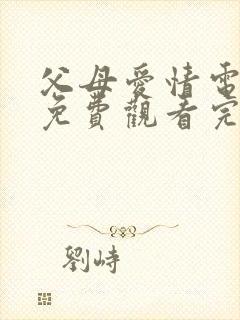 父母愛情電
免費觀看完
劉峙